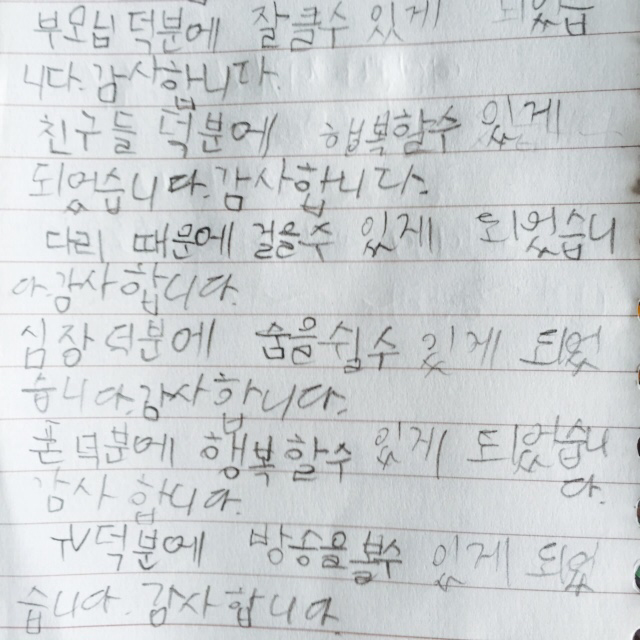 부모님 덕분에 잘볼수 있게 되었습
니다.감사합니다
친구들 덕분에 행복할수 있게
되었습니다.감사합니다.
다리 때문에 걸을수 있게 되었습니
다.감사합니다.
심장 덕분에 숨을 쉴수 있게 되었
습니다.감사합니다.
돈덕분에 행복할수 있게 되었습니
다.
감사합니다.
TV덕분에 방송을볼수 있게 되었
습니다.감사합니다